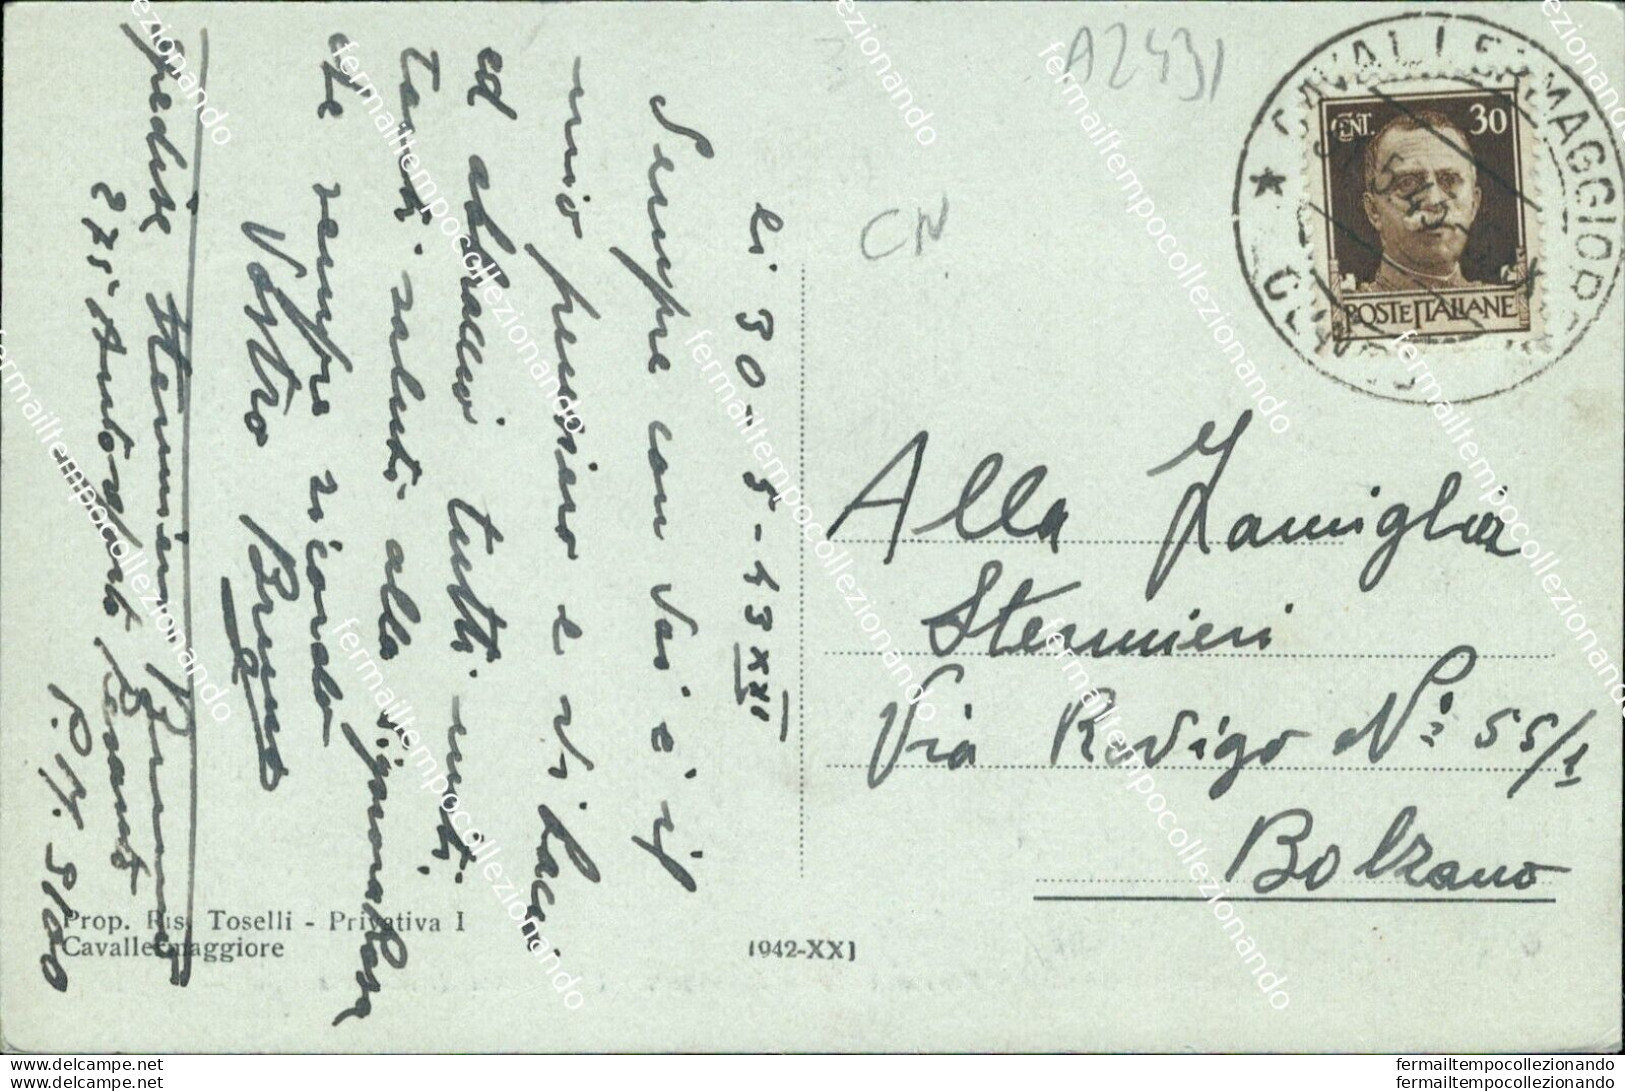 A2431
CN
CAVALLERMAGGIORE
CENT. 30
POSTE ITALIANE
li 30-5-43 XXI
Sempre con voi è il
mio pensiero e vi bacio
ed abbraccio tutti uniti.
Tanti saluti alla signora Rosa
che sempre ricordo
Vostro Bruno
spedisce Stermieri Bruno
235° Autoreparto Pesante
P.M. 3100
Alla Famiglia
Stermieri
Via Rovigo N° 55/1
Bolzano
Prop. Ris. Toselli - Privativa I
Cavallermaggiore
1942-XXI
fermailtempocollezionando
fermailtempocollezionando
fermailtempocollezionando
fermailtempocollezionando
www.delcampe.net
www.delcampe.net